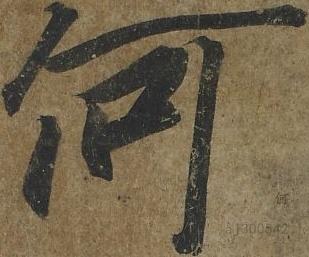 何
何
aj300542